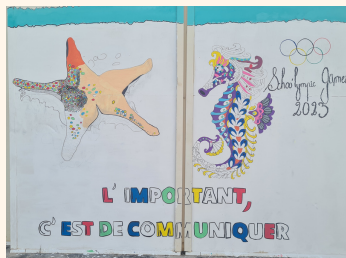 Schoolympic Games
2023
L' IMPORTANT,
C' EST DE COMMUNIQUER